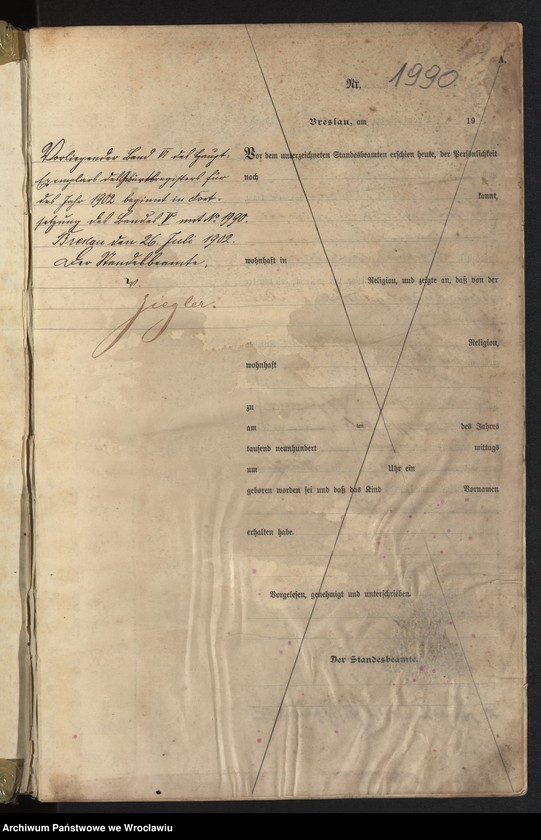 A.
Nr. 1990
Breslau, am 19
Vorliegender Band VI des Haupt-
Exemplars des Geburtsregisters für
das Jahr 1902 beginnt in Fort-
setzung des Bandes V mit No 1990.
Breslau den 26. Juli 1902.
Der Standesbeamte.
Ziegler.
Vor dem unterzeichneten Standesbeamten erschien heute, der Persönlichkeit
nach
kannt,
wohnhaft in
Religion, und zeigte an, daß von der
Religion,
wohnhaft
zu
am ten des Jahres
tausend neunhundert mittags
um Uhr ein
geboren worden sei und daß das Kind Vornamen
erhalten habe.
Vorgelesen, genehmigt und unterschrieben.
Der Standesbeamte.
Archiwum Państwowe we Wrocławiu